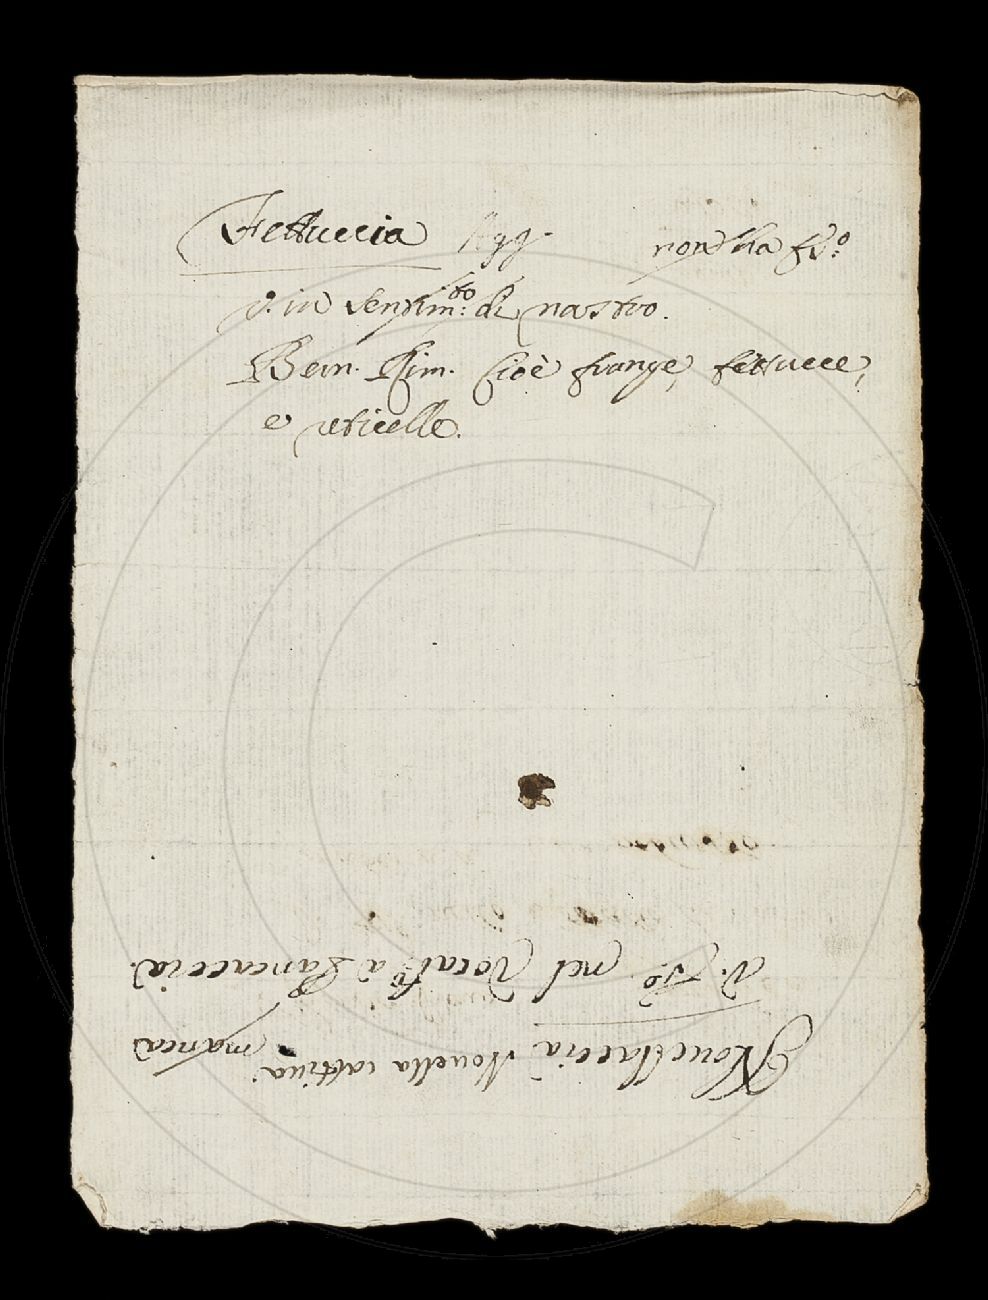 Fettuccia Agg. non ha fs.º
v. in sentim.to di nastro.
Bern. Rim. Cioè frange, fettucce,
e reticelle.
Nouellaccia Nouella cattiua. manca
v. fs.º nel Vocab.º à Lanaccia.